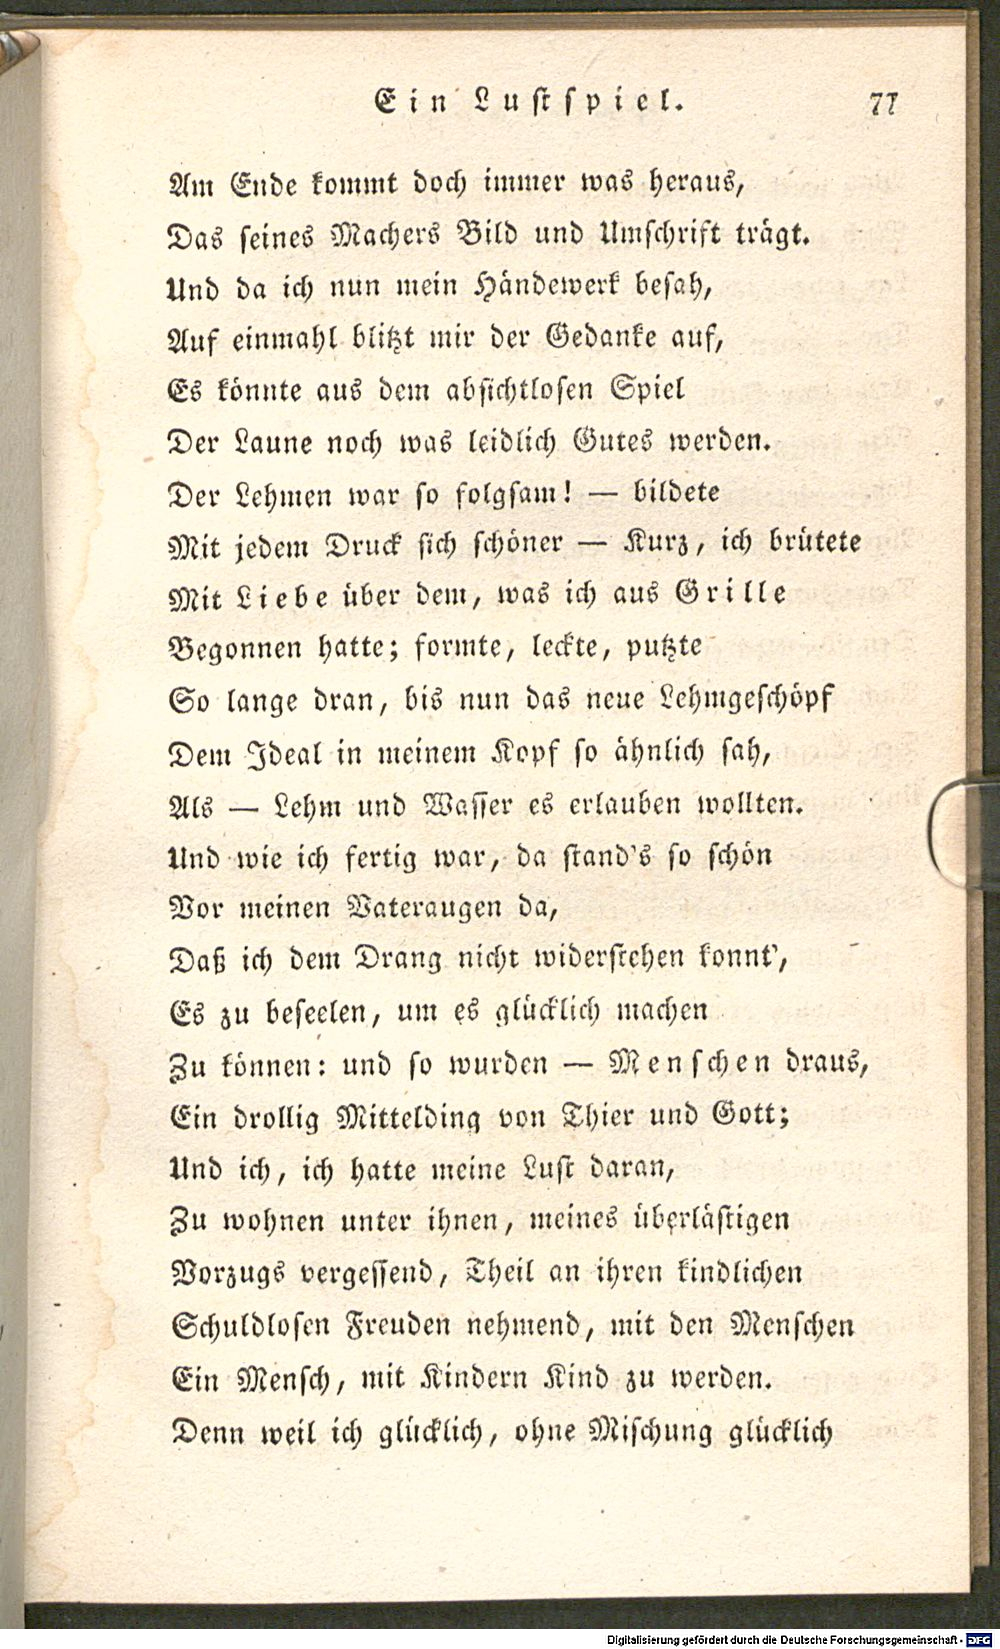 Ein Lustspiel. 77
Am Ende kommt doch immer was heraus,
Das seines Machers Bild und Umschrift trägt.
Und da ich nun mein Händewerk besah,
Auf einmahl blitzt mir der Gedanke auf,
Es könnte aus dem absichtlosen Spiel
Der Laune noch was leidlich Gutes werden.
Der Lehmen war so folgsam! — bildete
Mit jedem Druck sich schöner — Kurz, ich brütete
Mit Liebe über dem, was ich aus Grille
Begonnen hatte; formte, leckte, putzte
So lange dran, bis nun das neue Lehmgeschöpf
Dem Ideal in meinem Kopf so ähnlich sah,
Als — Lehm und Wasser es erlauben wollten.
Und wie ich fertig war, da stand's so schön
Vor meinen Vateraugen da,
Daß ich dem Drang nicht widerstehen konnt',
Es zu beseelen, um es glücklich machen
Zu können: und so wurden — Menschen draus,
Ein drollig Mittelding von Thier und Gott;
Und ich, ich hatte meine Lust daran,
Zu wohnen unter ihnen, meines überlästigen
Vorzugs vergessend, Theil an ihren kindlichen
Schuldlosen Freuden nehmend, mit den Menschen
Ein Mensch, mit Kindern Kind zu werden.
Denn weil ich glücklich, ohne Mischung glücklich
Digitalisierung gefördert durch die Deutsche Forschungsgemeinschaft - DFG